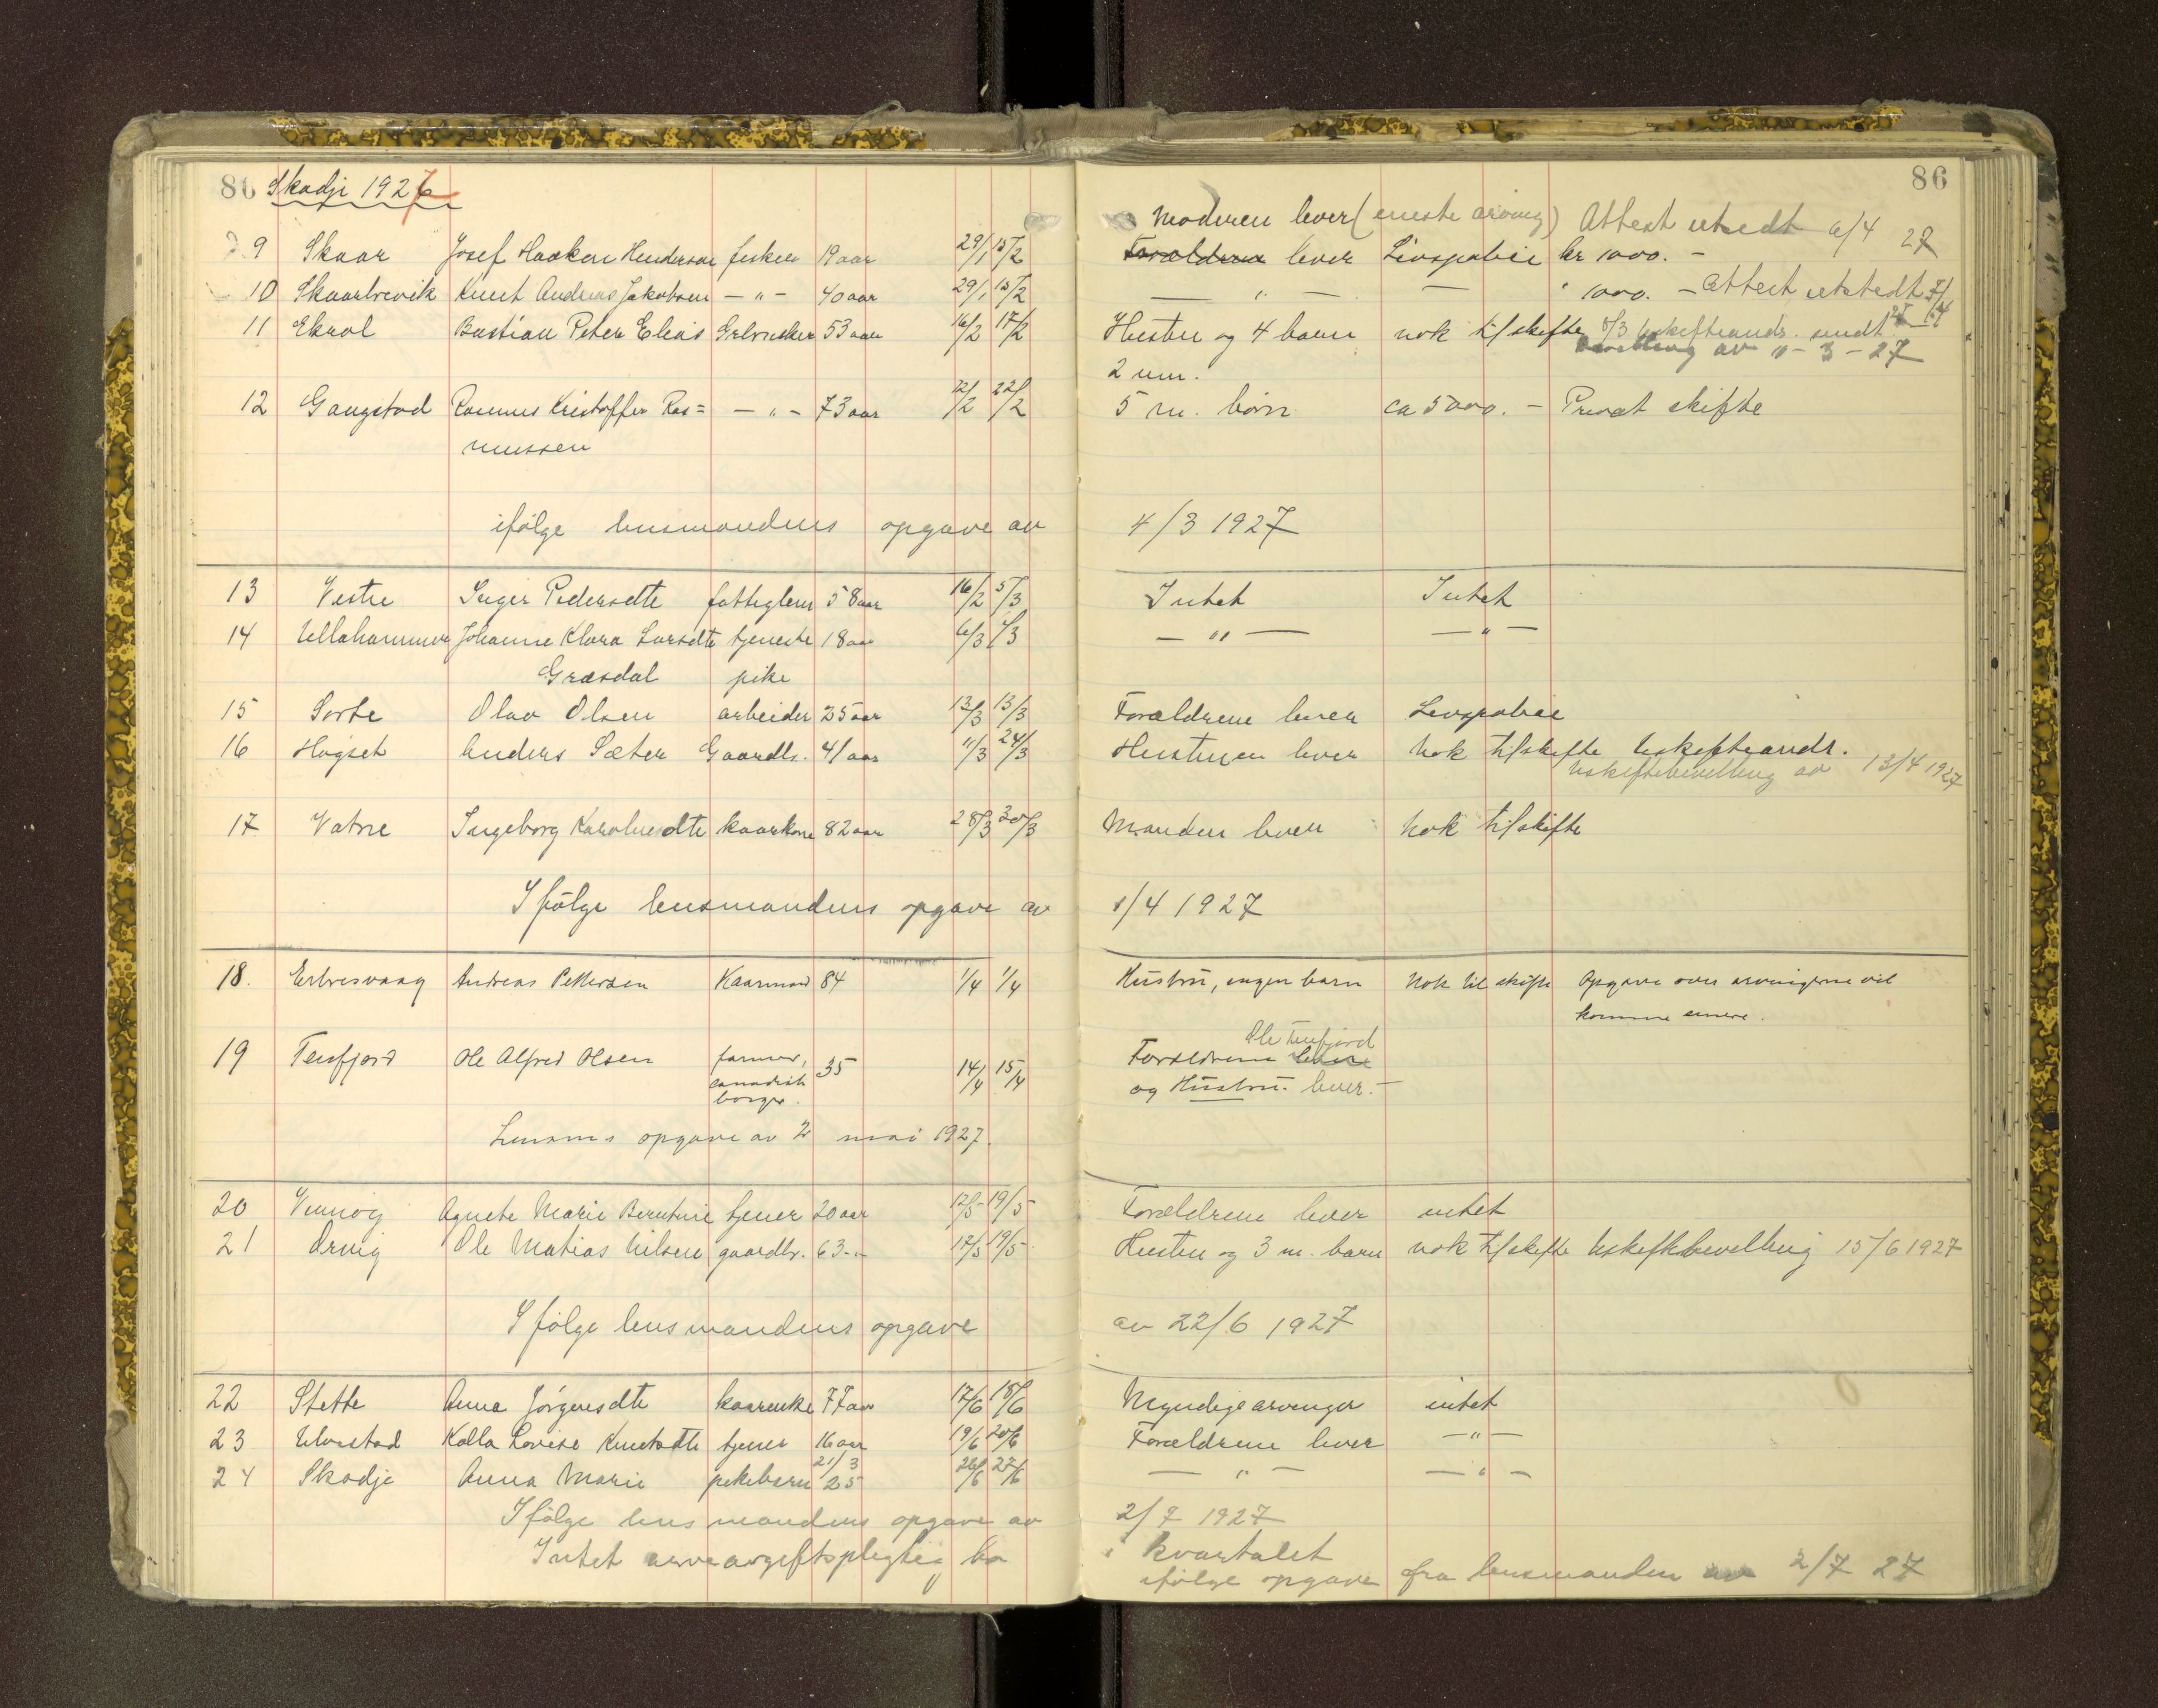 86 Skodje 1927 86
Moderen lever (eneste arving) Attest utstedt 6/4 27
9 Skaar Josef Haakon Hendersen fisker 19 aar 29/1 15/2 Forældrene lever Livspolice kr 1000. -
10 Skaarbrevik Knut Andreas Jakobsen - " - 40 aar 29/1 15/2 - " - - " 1000. - Attest utstedt
11 Ekrol Bastian Peter Eleas Grbruker 53 aar 16/2 17/2 Hustru og 4 barn nok til skifte 8/3 uskifteandr. sendt
2 um. bevilling av 11-3-27
12 Gangstad Rasmus Kristoffer Ras= - " - 73 aar 12/2 22/2 5 m. børn ca 5000. - Privat skifte
mussen
ifølge lensmandens opgave av 4/3 1927
13 Vestre Inger Pedersdtr fattiglem 58 aar 16/2 5/3 Intet Intet
14 Ullahammer Johanne Klara Larsdtr tjeneste 18 aar 6/3 /3 - " - - " -
Græsdal pike
15 Sorte Olav Olsen arbeider 25 aar 13/3 13/3 Forældrene lever Livspolice
16 Høgset Anders Sæter Gaardbr. 41 aar 11/3 24/3 Hustruen lever Nok til skifte Uskifteandr.
Uskiftebevilling av 13/4 1927
17 Vatne Ingeborg Karolusdtr kaarkone 82 aar 28/3 30/3 Manden lever Nok til skifte
Ifølge lensmandens opgave av 1/4 1927
18. Erlvesvaag Andreas Pettersen Kaarmand 84 1/4 1/4 Hustru, ingen barn Nok til skifte Opgave over arvingerne vil
komme senere.
Ole Tenfjord
19 Tenfjord Ole Alfred Olsen farmer, 35 14/4 15/4 Forældrene lever
canadisk og Hustru. lever. -
borger.
Lensm's opgave av 2 mai 1927.
20 Vennøy Agnete Marie Berntine tjener 20 aar 12/5 19/5 Forældrene lever intet
21 Ørvig Ole Matias Nilsen gaardbr. 63 - " - 12/5 19/5 Hustru og 3 m. barn nok til skifte Uskiftebevilling 15/6 1927
Ifølge lensmandens opgave av 22/6 1927
22 Stette Anna Jørgensdtr kaarenke 77 aar 17/6 18/6 Myndige arvinger intet
23 Ulvestad Kalla Lovise Knutsdtr tjener 16 aar 19/6 20/6 Forældrene lever - " -
24 Skodje Anna Marie pikebarn 21/3 25 26/6 27/6 - " - - " -
Ifølge lensmandens opgave av 2/7 1927
Intet arveavgiftspligtig bo i kvartalet
ifølge opgave fra lensmanden av 2/7 27